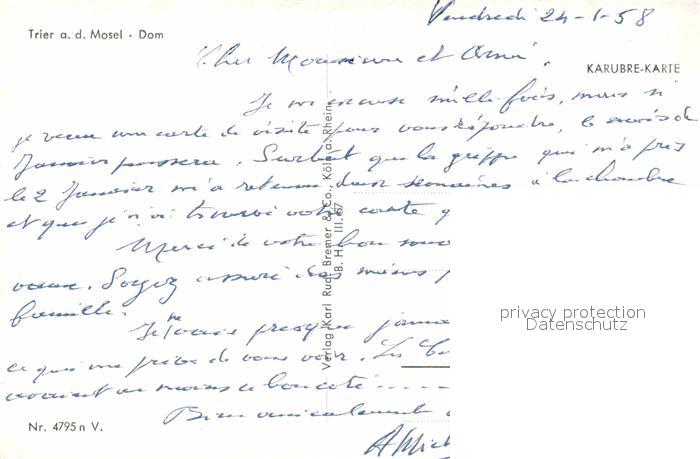 Vendredi 24-1-58
Trier a. d. Mosel · Dom
Cher Monsieur et Ami,
KARUBRE-KARTE
Je m'excuse mille fois, mais si
je veux une carte de visite pour vous répondre, le mois de
Janvier passera. Surtout que la grippe qui m'a pris
le 2 Janvier m'a retenu deux semaines à la chambre
et que je n'ai trouvé votre carte q
Merci de votre bon souv
vœux. Soyez assuré des miens p
famille.
Je ne vais presque jamai
ce qui me prive de vous voir. Les
avaient au moins ce bon côté.....
Bien amicalement
A Mich
Nr. 4795 n V.
Verlag Karl Rud. Bremer & Co., Köln a. Rhein
B. H. III. 67
privacy protection
Datenschutz